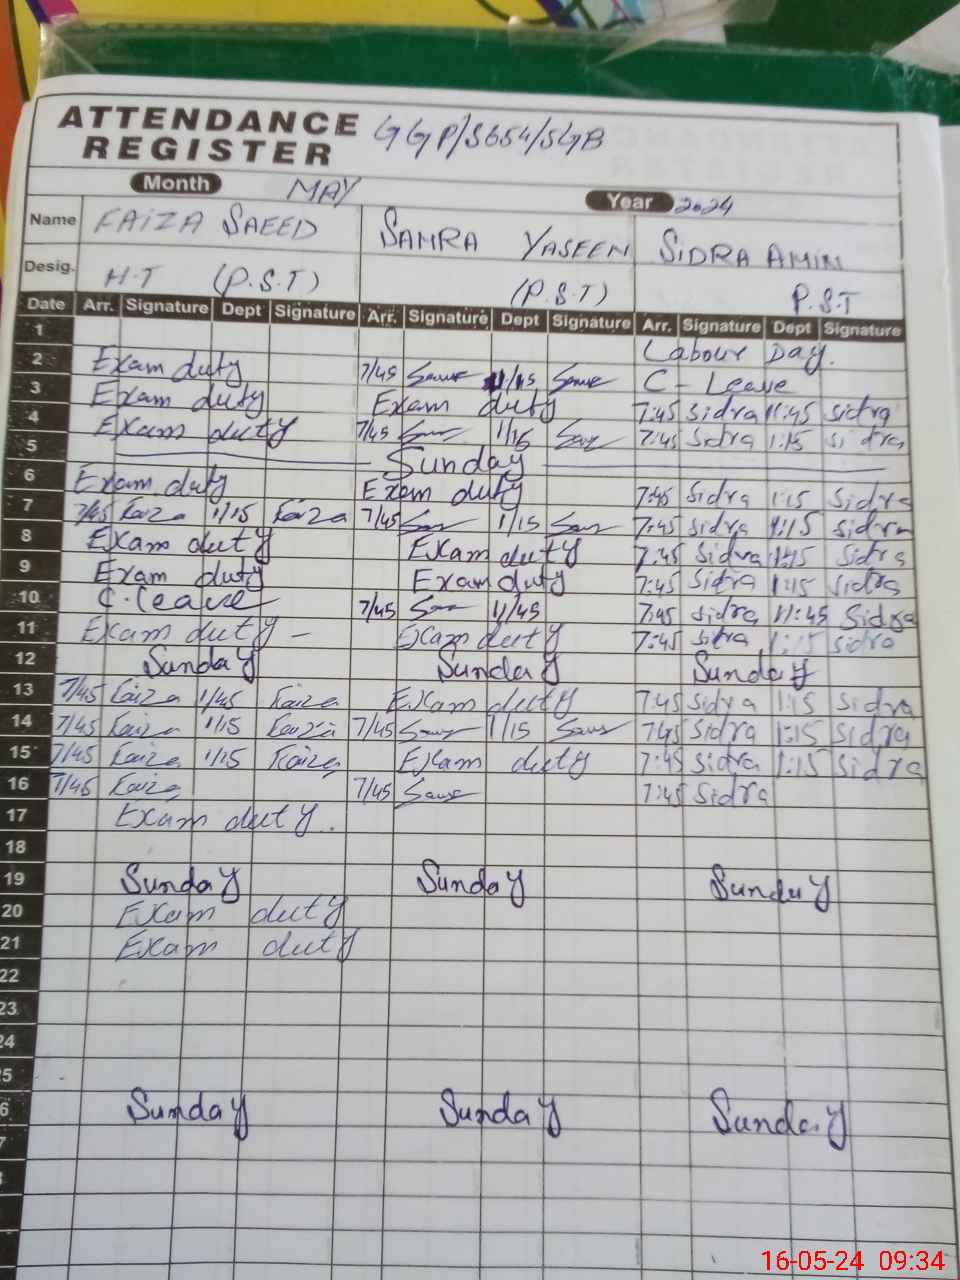 ATTENDANCE REGISTER GGP/S654/SGB
Month MAY Year 2024
Name FAIZA SAEED SAMRA YASEEN SIDRA AMIN
Desig. H.T (P.S.T) (P.S.T) P.S.T
Date Arr. Signature Dept Signature Arr. Signature Dept Signature Arr. Signature Dept Signature
1 Labour Day.
2 Exam duty 7/45 1/15 C-Leave
3 Exam duty Exam duty 7:45 Sidra 11:45 sidra
4 Exam duty 7/45 1/15 7:45 Sidra 1:15 sidra
5 Sunday
6 Exam duty Exam duty 7:45 Sidra 1:15 Sidra
7 7/45 Faiza 1/15 Faiza 7/45 1/15 7:45 Sidra 1:15 sidra
8 Exam duty Exam duty 7:45 Sidra 1:15 Sidra
9 Exam duty Exam duty 7:45 Sidra 1:15 Sidra
10 C.Leave 7/45 11/45 7:45 Sidra 11:45 Sidra
11 Exam duty - Exam duty 7:45 sidra 1:15 sidra
12 Sunday Sunday Sunday
13 7/45 Faiza 1/45 Faiza Exam duty 7:45 Sidra 1:15 Sidra
14 7/45 Faiza 1/15 Faiza 7/45 1/15 7:45 Sidra 1:15 Sidra
15 7/45 Faiza 1/15 Faiza Exam duty 7:45 Sidra 1:15 Sidra
16 7/45 Faiza 7/45 7:45 Sidra
17 Exam duty.
18
19 Sunday Sunday Sunday
20 Exam duty
21 Exam duty
22
23
24
5
6 Sunday Sunday Sunday
7
16-05-24 09:34